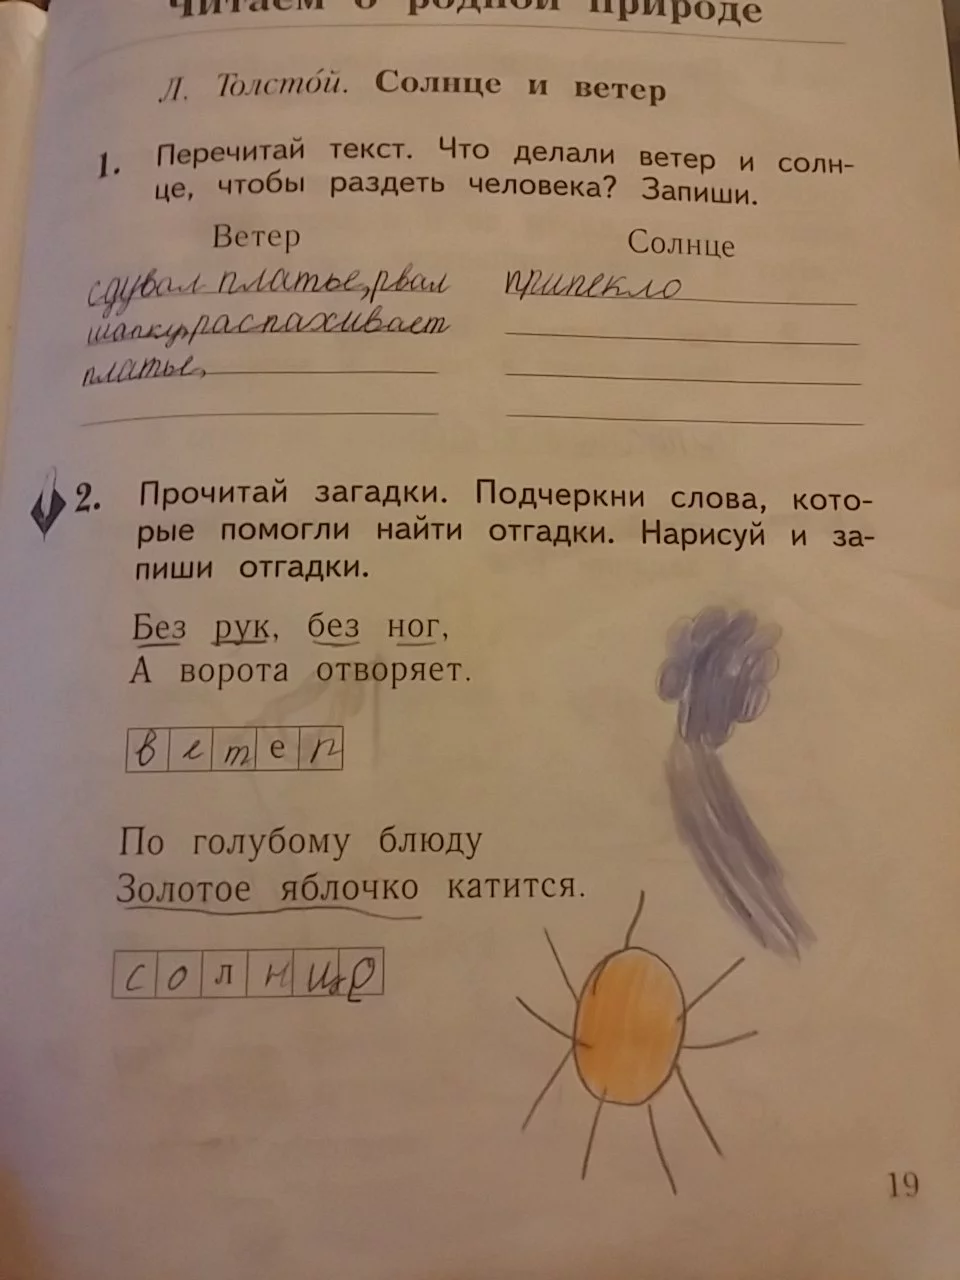 читаем о родной природе
Л. Толсто́й. Солнце и ветер
1. Перечитай текст. Что делали ветер и солн-
це, чтобы раздеть человека? Запиши.
Ветер
сдувал платье, рвал
шапку, распахивает
платье,
Солнце
припекло
2. Прочитай загадки. Подчеркни слова, кото-
рые помогли найти отгадки. Нарисуй и за-
пиши отгадки.
Без рук, без ног,
А ворота отворяет.
ветер
По голубому блюду
Золотое яблочко катится.
солнце
19